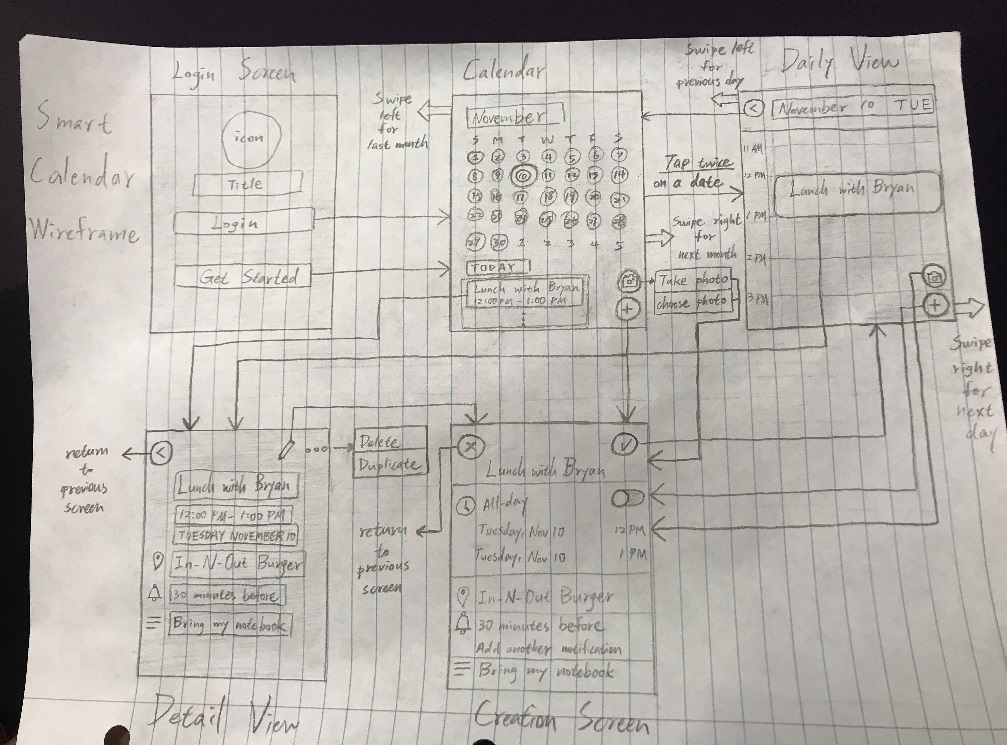 Smart
Calendar
Wireframe
Login Screen
icon
Title
Login
Get Started
Calendar
Swipe
left
for
last month
November
S M T W T F S
1 2 3 4 5 6 7
8 9 10 11 12 13 14
15 16 17 18 19 20 21
22 23 24 25 26 27 28
29 30 1 2 3 4 5
TODAY
Lunch with Bryan
12:00 PM - 1:00 PM
Tap twice
on a date
Swipe right
for
next month
Take photo
choose photo
Swipe left
for
previous day
Daily View
< November 10 TUE
11 AM
12 PM
Lunch with Bryan
1 PM
2 PM
3 PM
+
+
Swipe
right
for
next
day
return
to
previous
screen
<
Delete
Duplicate
Lunch with Bryan
12:00 PM - 1:00 PM
TUESDAY NOVEMBER 10
In-N-Out Burger
30 minutes before
Bring my notebook
Detail View
return
to
previous
screen
Lunch with Bryan
All-day
Tuesday, Nov 10 12 PM
Tuesday, Nov 10 1 PM
In-N-Out Burger
30 minutes before
Add another notification
Bring my notebook
Creation Screen